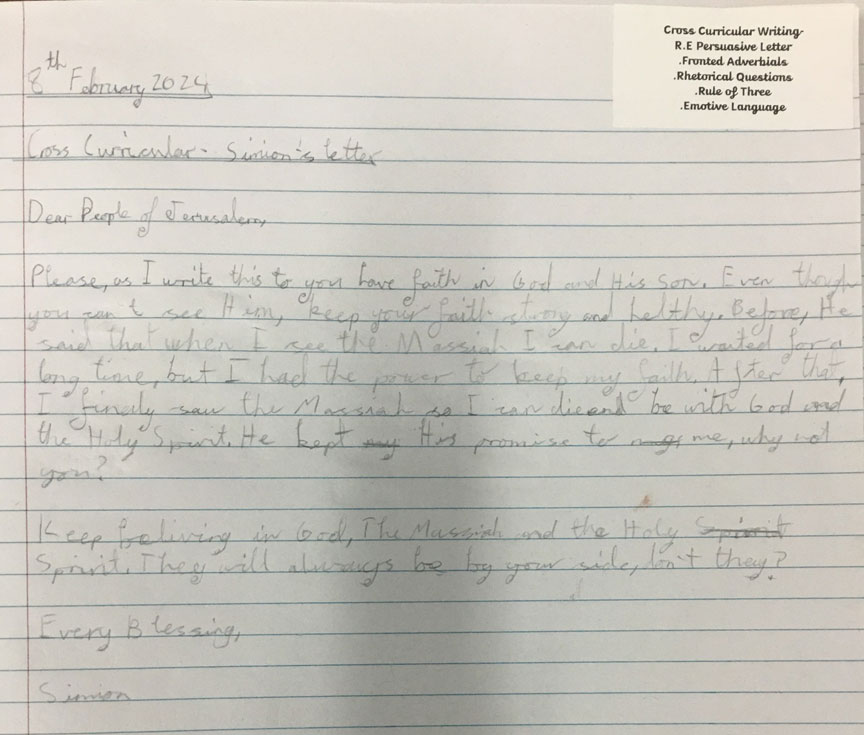 Cross Curricular Writing-
R.E Persuasive Letter
.Fronted Adverbials
.Rhetorical Questions
.Rule of Three
.Emotive Language
8th February 2024
Cross Curricular - Simion's letter
Dear People of Jerusalem,
Please, as I write this to you have faith in God and His Son. Even though
you can't see Him, keep your faith strong and helthy. Before, He
said that when I see the Massiah I can die. I waited for a
long time, but I had the power to keep my faith. After that,
I finely saw the Massiah so I can die and be with God and
the Holy Spirit. He kept my His promise to me, why not
you?
Keep beliving in God, The Massiah and the Holy Spirit
Spirit. They will always be by your side, don't they?
Every Blessing,
Simion